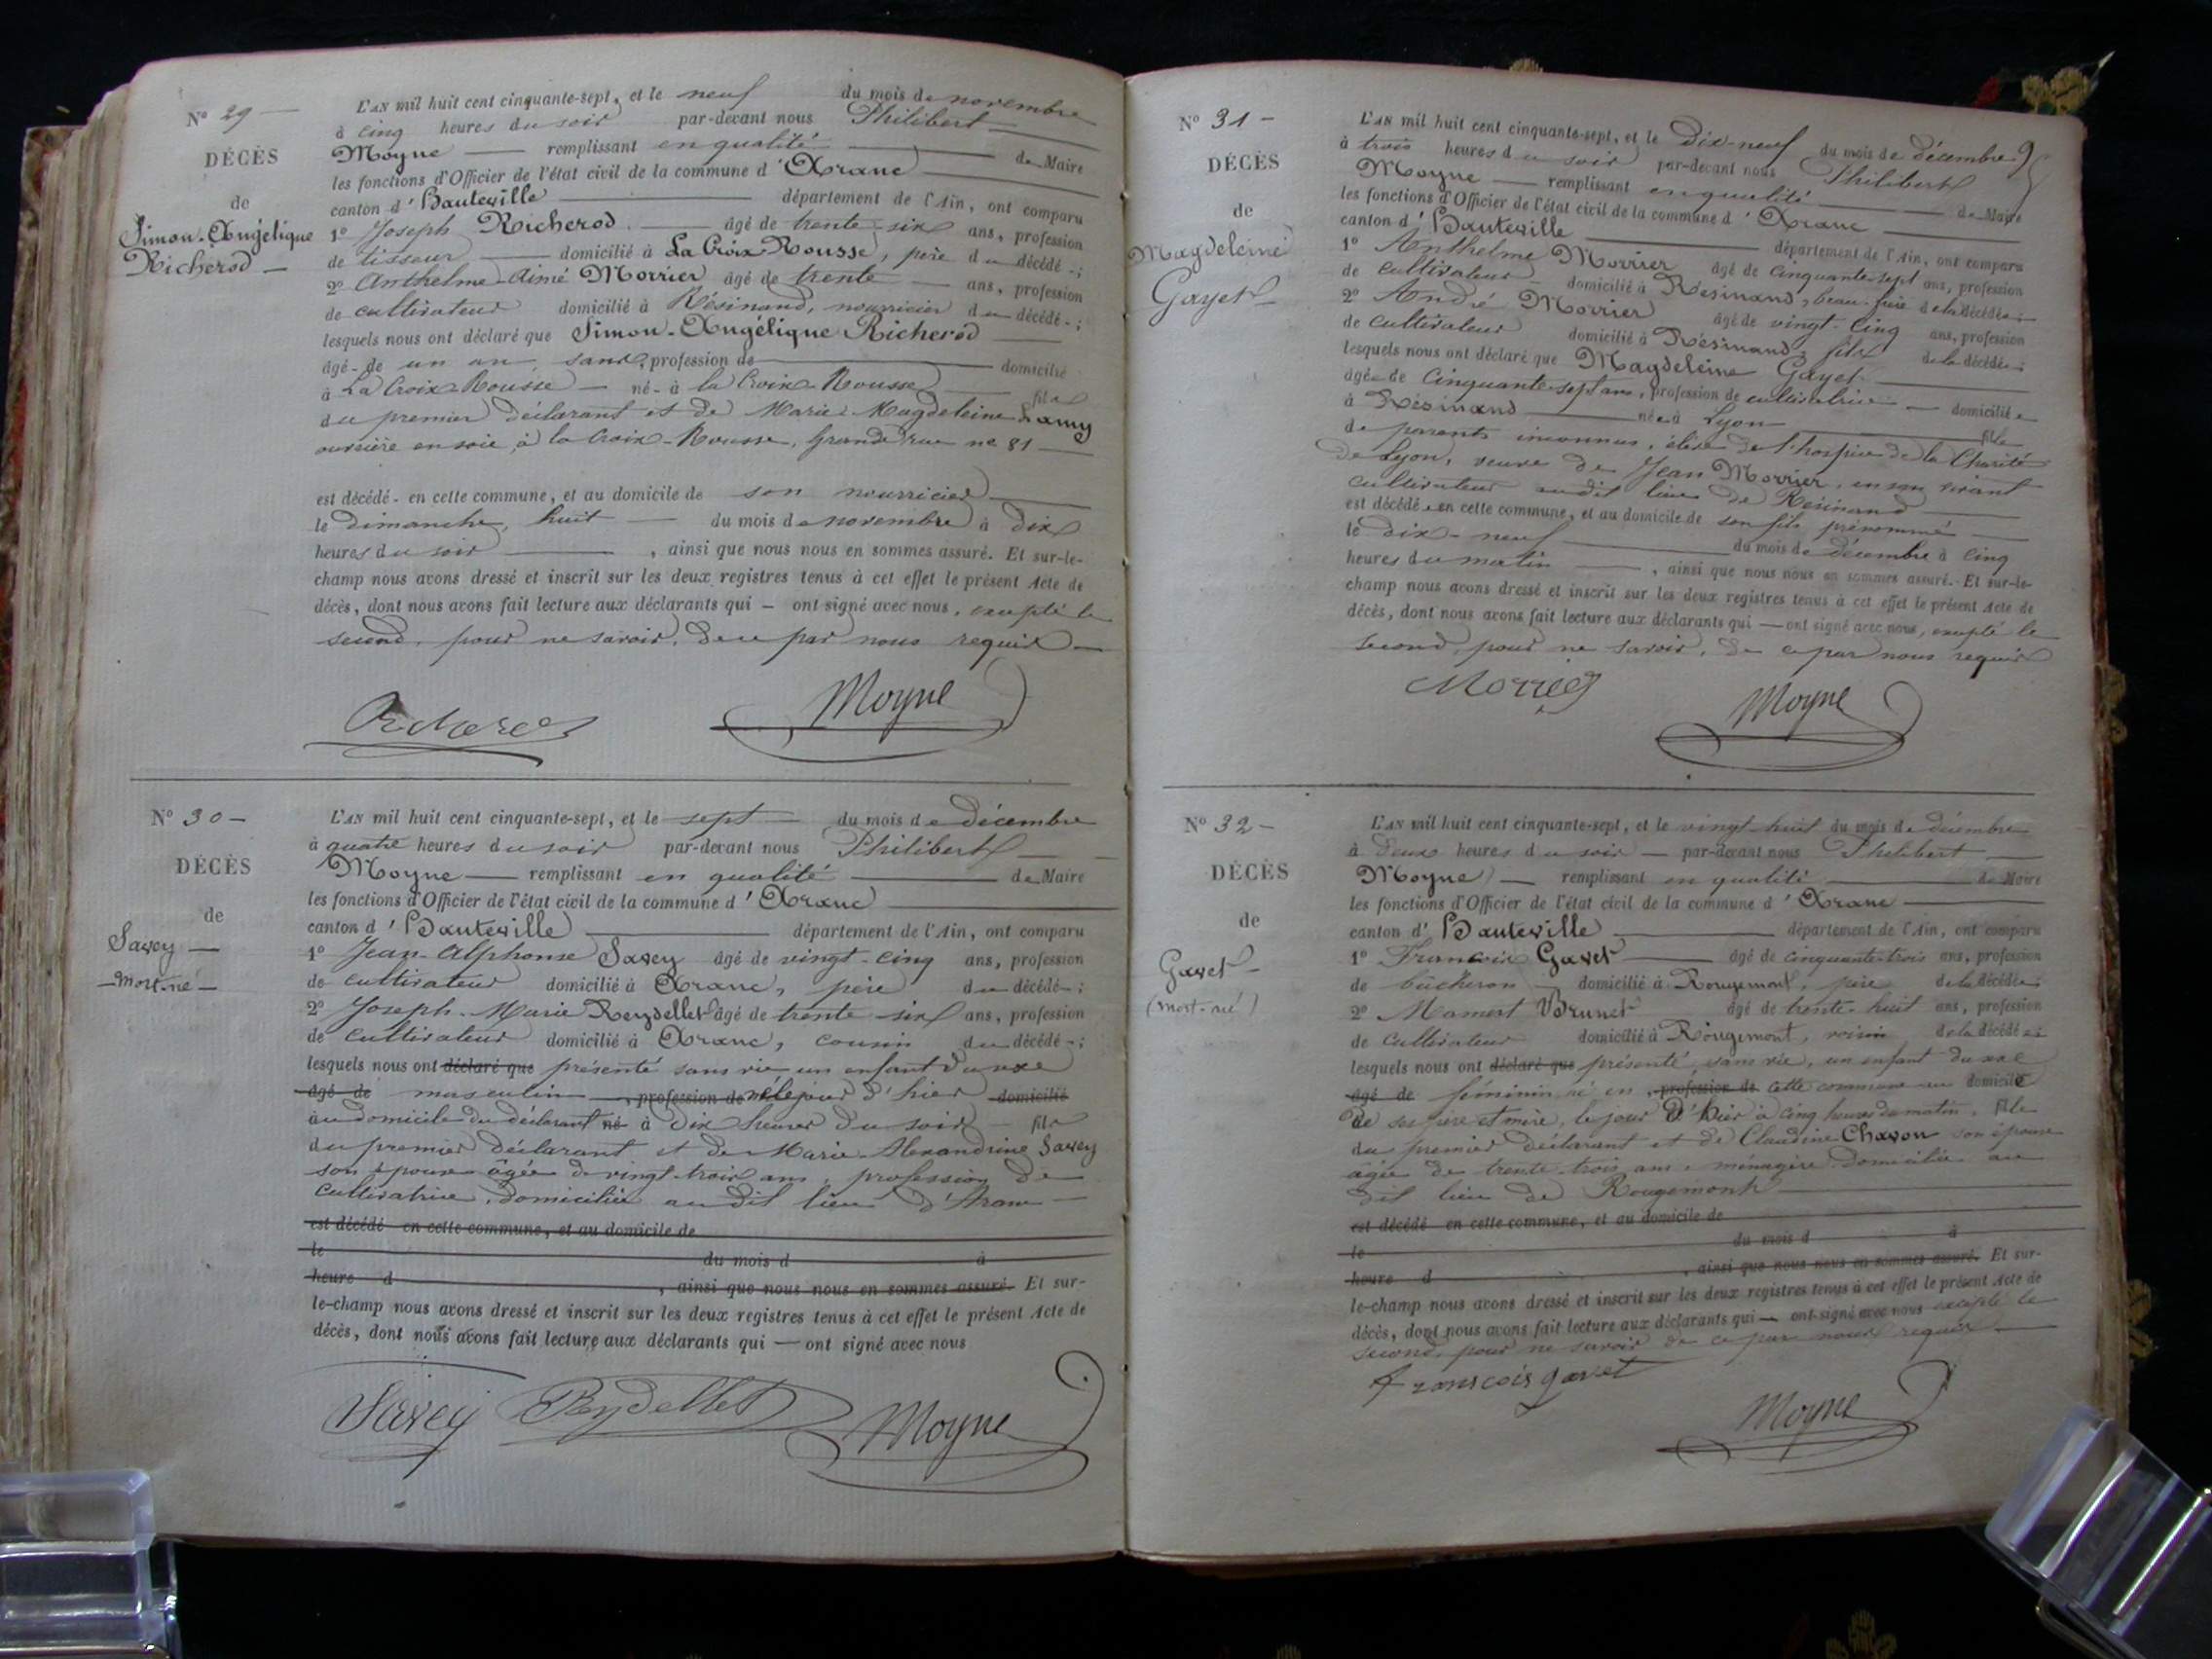 N° 29 —
DÉCÈS
de
Simon-Angélique
Richerod —
L'AN mil huit cent cinquante-sept, et le neuf du mois de novembre
à cinq heures du soir par-devant nous Philibert
Moyne — remplissant en qualité — de Maire
les fonctions d'Officier de l'état civil de la commune d'Aranc
canton d'Hauteville — département de l'Ain, ont comparu
1° Joseph Richerod — âgé de trente-six ans, profession
de tisseur — domicilié à La Croix-Rousse, père du décédé- ;
2° Anthelme-Aimé Morrier âgé de trente — ans, profession
de cultivateur domicilié à Résinand, nourricier du décédé- ;
lesquels nous ont déclaré que Simon-Angélique Richerod —
âgé- de un an, sans profession de — domicilié
à La Croix-Rousse — né- à la Croix-Rousse — fils
du premier déclarant et de Marie-Magdeleine Lamy
ouvrière en soie, à la Croix-Rousse, Grande rue n° 81 —
est décédé- en cette commune, et au domicile de son nourricier —
le dimanche, huit — du mois de novembre à dix
heures du soir — , ainsi que nous nous en sommes assuré. Et sur-le-
champ nous avons dressé et inscrit sur les deux registres tenus à cet effet le présent Acte de
décès, dont nous avons fait lecture aux déclarants qui — ont signé avec nous, excepté le
second, pour ne savoir, de ce par nous requis —
Moyne
N° 30 —
DÉCÈS
de
Savey —
— mort-né —
L'AN mil huit cent cinquante-sept, et le sept — du mois de décembre
à quatre heures du soir par-devant nous Philibert —
Moyne — remplissant en qualité — de Maire
les fonctions d'Officier de l'état civil de la commune d'Aranc
canton d'Hauteville — département de l'Ain, ont comparu
1° Jean-Alphonse Savey âgé de vingt-cinq ans, profession
de cultivateur domicilié à Aranc, père du décédé- ;
2° Joseph-Marie Reydellet âgé de trente-six ans, profession
de cultivateur domicilié à Aranc, cousin du décédé- ;
lesquels nous ont déclaré que présenté sans vie un enfant du sexe
âgé de masculin — , profession de né le jour d'hier domicilié
au domicile du déclarant né à dix heures du soir — fils
du premier déclarant et de Marie-Alexandrine Savey
son épouse âgée de vingt-trois ans, profession de
cultivatrice, domiciliée audit lieu d'Aranc —
est décédé en cette commune, et au domicile de
le du mois d à
heure d , ainsi que nous nous en sommes assuré. Et sur-
le-champ nous avons dressé et inscrit sur les deux registres tenus à cet effet le présent Acte de
décès, dont nous avons fait lecture aux déclarants qui — ont signé avec nous
Savey Reydellet Moyne
N° 31 —
DÉCÈS
de
Magdeleine
Gayet —
L'AN mil huit cent cinquante-sept, et le Dix-neuf du mois de décembre
à trois heures du soir par-devant nous Philibert
Moyne — remplissant en qualité — de Maire
les fonctions d'Officier de l'état civil de la commune d'Aranc —
canton d'Hauteville — département de l'Ain, ont comparu
1° Anthelme Morrier âgé de cinquante-sept ans, profession
de cultivateur — domicilié à Résinand, beau-frère de la décédée ;
2° André Morrier âgé de vingt-cinq ans, profession
de cultivateur domicilié à Résinand, fils de la décédée ;
lesquels nous ont déclaré que Magdeleine Gayet —
âgée de cinquante-sept ans, profession de cultivatrice — domiciliée
à Résinand — née à Lyon — fille
de parents inconnus, élève de l'hospice de la Charité
de Lyon, veuve de Jean Morrier, en son vivant
cultivateur audit lieu de Résinand —
est décédée en cette commune, et au domicile de son fils prénommé —
le dix-neuf — du mois de décembre à cinq
heures du matin — , ainsi que nous nous en sommes assuré. Et sur-le-
champ nous avons dressé et inscrit sur les deux registres tenus à cet effet le présent Acte de
décès, dont nous avons fait lecture aux déclarants qui — ont signé avec nous, excepté le
second, pour ne savoir, de ce par nous requis
Morrier Moyne
N° 32 —
DÉCÈS
de
Gavet —
(mort-né)
L'AN mil huit cent cinquante-sept, et le vingt-huit du mois de décembre
à deux heures du soir — par-devant nous Philibert —
Moyne — remplissant en qualité — de Maire
les fonctions d'Officier de l'état civil de la commune d'Aranc —
canton d'Hauteville — département de l'Ain, ont comparu
1° François Gavet — âgé de cinquante-trois ans, profession
de bûcheron — domicilié à Rougemont, père de la décédée ;
2° Mamert Brunet âgé de trente-huit ans, profession
de cultivateur domicilié à Rougemont, voisin de la décédée ;
lesquels nous ont déclaré que présenté, sans vie, un enfant du sexe
âgé de féminin né en , profession de cette commune au domicile
de ses père et mère, le jour d'hier à cinq heures du matin, fille
du premier déclarant et de Claudine Chavon son épouse
âgée de trente-trois ans, ménagère domiciliée au
dit lieu de Rougemont —
est décédé en cette commune, et au domicile de
le du mois d à
heure d , ainsi que nous nous en sommes assuré. Et sur-
le-champ nous avons dressé et inscrit sur les deux registres tenus à cet effet le présent Acte de
décès, dont nous avons fait lecture aux déclarants qui — ont signé avec nous excepté le
second, pour ne savoir de ce par nous requis —
françois gavet
Moyne